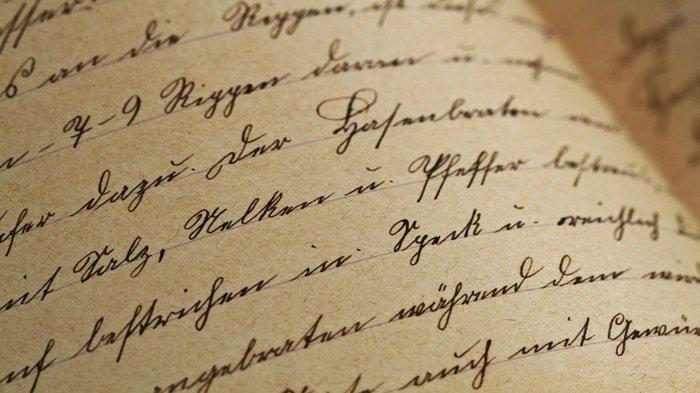 sser
s an die Rippen, ist dieses
n - 7 - 9 Rippen daran u.
fer dazu. Der Hasenbraten
mit Salz, Nelken u. Pfeffer bestreut
nf bestrichen in Speck u. reichlich
angebraten während dem wird
auch mit Gewür